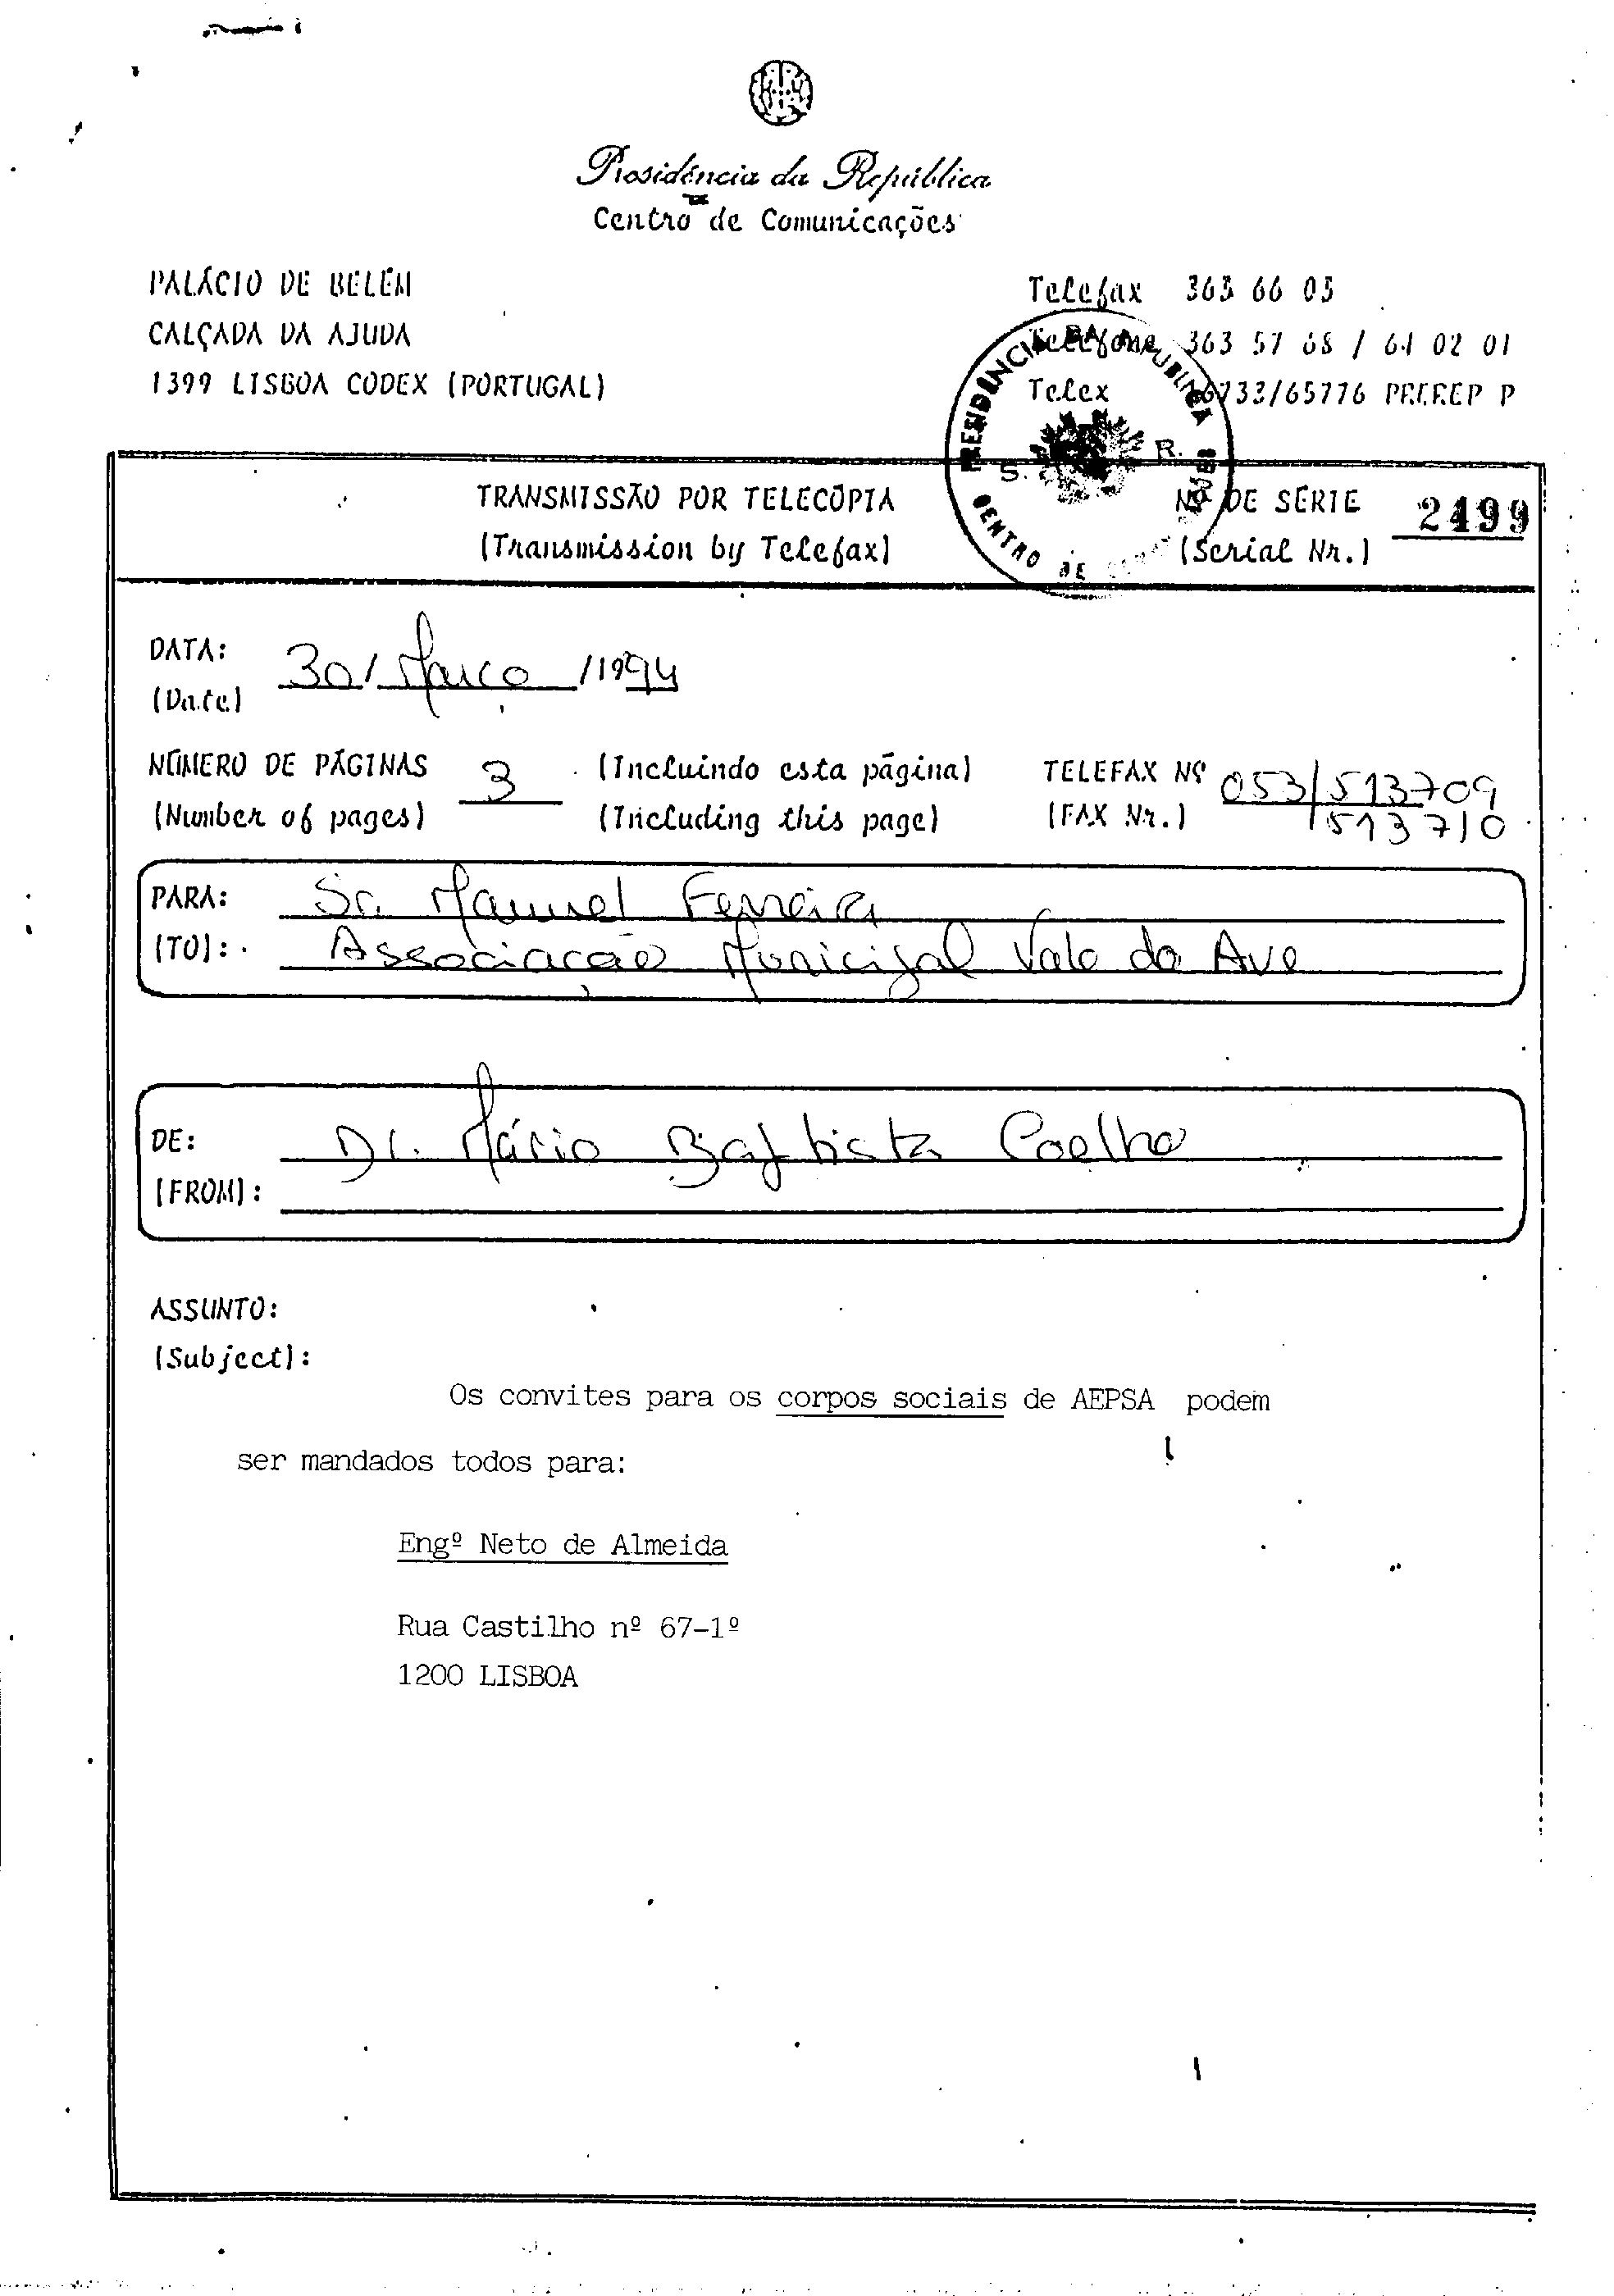 Presidência da República
Centro de Comunicações
PALÁCIO DE BELÉM
CALÇADA DA AJUDA
1399 LISBOA CODEX (PORTUGAL)
Telefax 363 66 03
Telefone 363 57 68 / 64 02 01
Telex /65776 P
PRESIDÊNCIA DA REPÚBLICA
S. R.
CENTRO DE
TRANSMISSÃO POR TELECÓPIA
(Transmission by Telefax)
Nº DE SÉRIE 2499
(Serial Nr.)
DATA: 30/ Março /1994
(Date)
NÚMERO DE PÁGINAS 3 (Incluindo esta página) TELEFAX Nº 053/513709
(Number of pages) (Including this page) (FAX Nr.) 513710
PARA: Sr. Manuel Ferreira
(TO): Associação Municipal Vale do Ave
DE: Dr. Mário Baptista Coelho
(FROM):
ASSUNTO:
(Subject):
Os convites para os corpos sociais de AEPSA podem
ser mandados todos para:
Engº Neto de Almeida
Rua Castilho nº 67-1º
1200 LISBOA